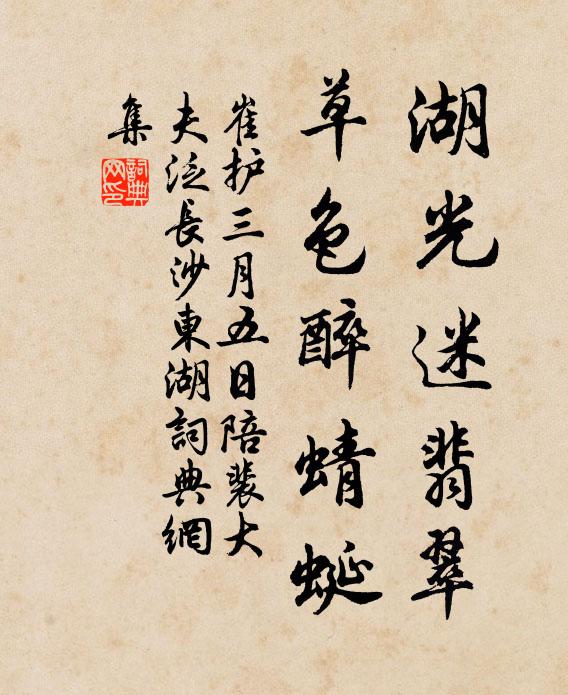 湖光迷翡翠
草色醉蜻蜓
崔护三月五日陪裴大
夫泛長沙東湖詞典網
集
詞典
网印